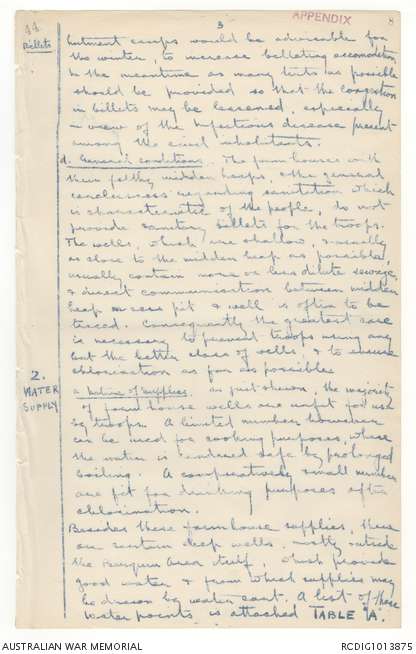 APPENDIX
3
8
Billets
hutment camps would be advisable for
the winter, to increase billeting accomodation
In the meantime as many tents as possible
should be provided so that the congestion
in billets may be lessened, especially
in view of the infectious disease present
among the civil inhabitants.
d. General conditions. The farm houses with
their filthy midden heaps, & the general
carelessness regarding sanitation which
is characteristic of the people, do not
provide sanitary billets for the troops.
The wells, which are shallow, & usually
as close to the midden heap as possible,
usually contain more or less dilute sewage,
& direct communication between midden
heap or cess pit & well is often to be
traced. Consequently the greatest care
is necessary to prevent troops using any
but the better class of wells, & to ensure
chlorination as far as possible.
2.
WATER
SUPPLY
a Nature of supplies. As just shewn, the majority
of farm house wells are unfit for use
by troops. A limited number however
can be used for cooking purposes, where
the water is rendered safe by prolonged
boiling. A comparatively small number
are fit for drinking purposes after
chlorination.
Besides these farm house supplies, there
are certain deep wells, mostly outside
the area itself, which provide
good water & from which supplies may
be drawn by water cart. A list of these
water points is attached TABLE 'A'.
AUSTRALIAN WAR MEMORIAL
RCDIG1013875